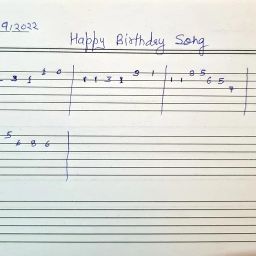 9/2022
Happy Birthday Song
3 1 1 0 1 1 3 1 9 1 1 1 8 5 6 5 9
5 6 8 6